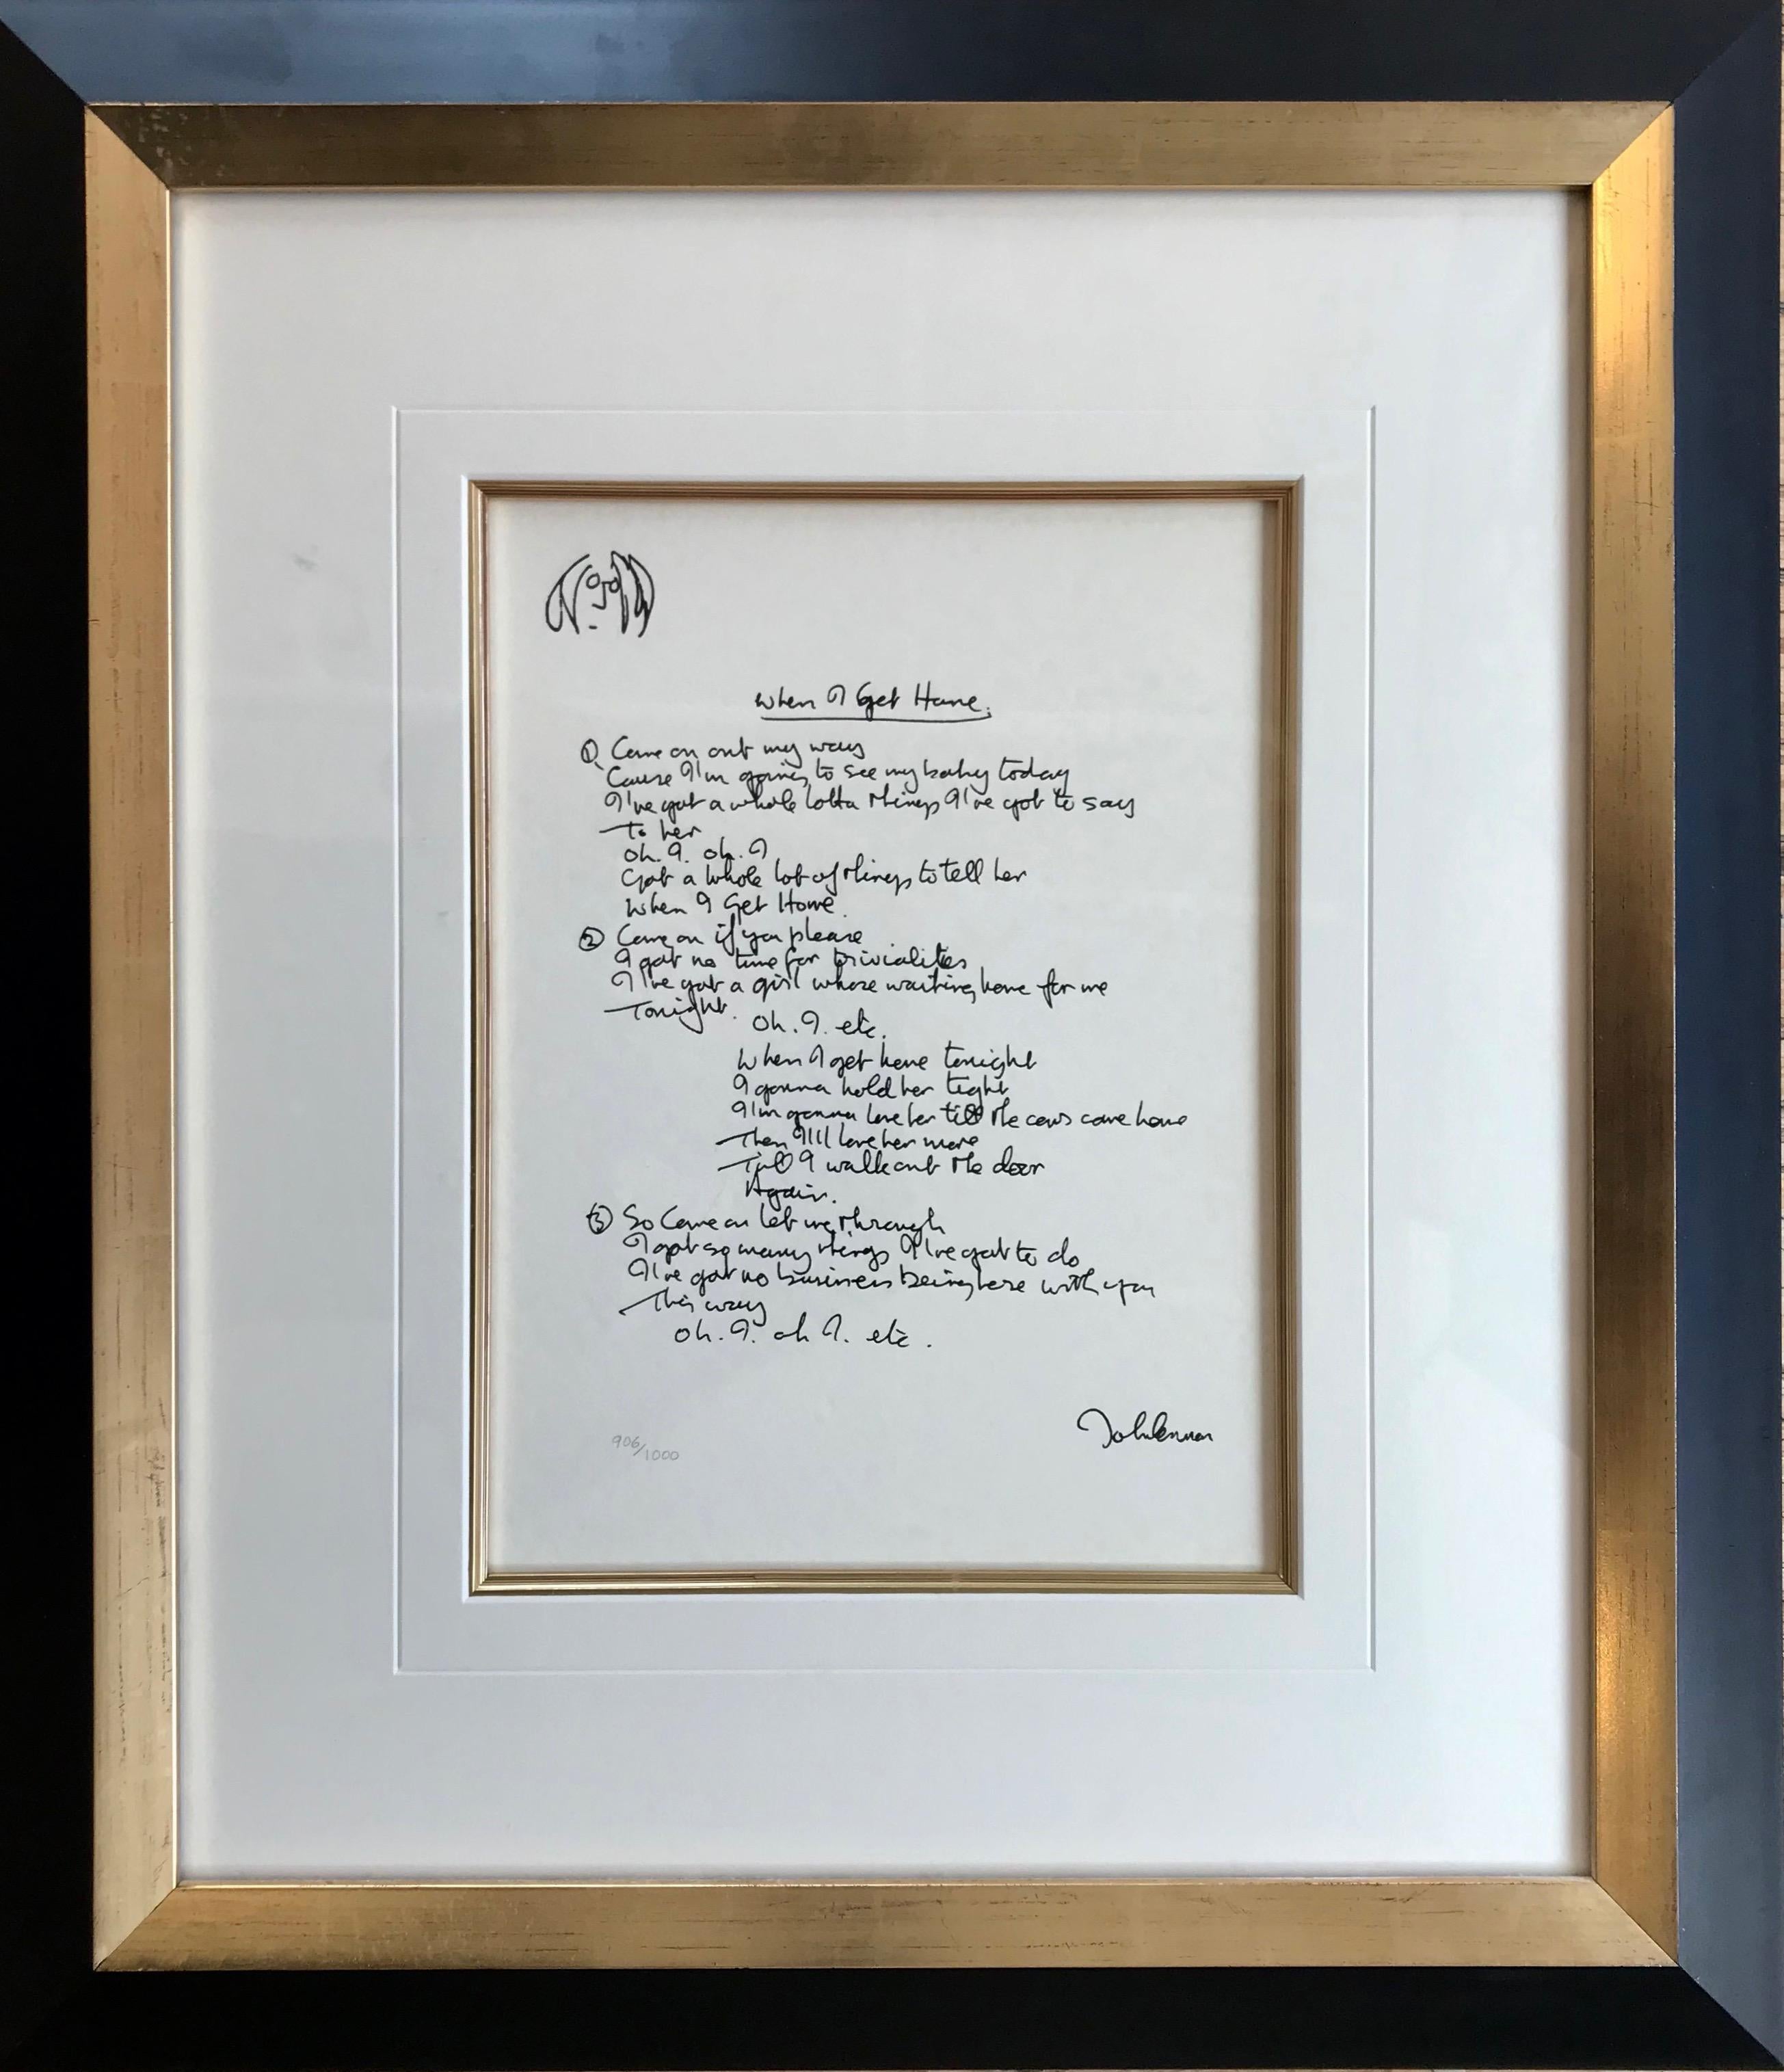 When I Get Home.
① Come on out my way
'Cause I'm going to see my baby today
I've got a whole lotta things I've got to say
To her
oh. I. oh. I
Got a whole lot of things to tell her
When I Get Home.
② Come on if you please
I got no time for trivialities
I've got a girl whose waiting home for me
Tonight.
Oh. I. etc.
When I get home tonight
I gonna hold her tight
I'm gonna love her till the cows come home
Then I'll love her more
Till I walk out the door
Again.
③ So Come on let me through
I got so many things I've got to do
I've got no business being here with you
This way
oh. I. oh I. etc.
John Lennon
906/1000